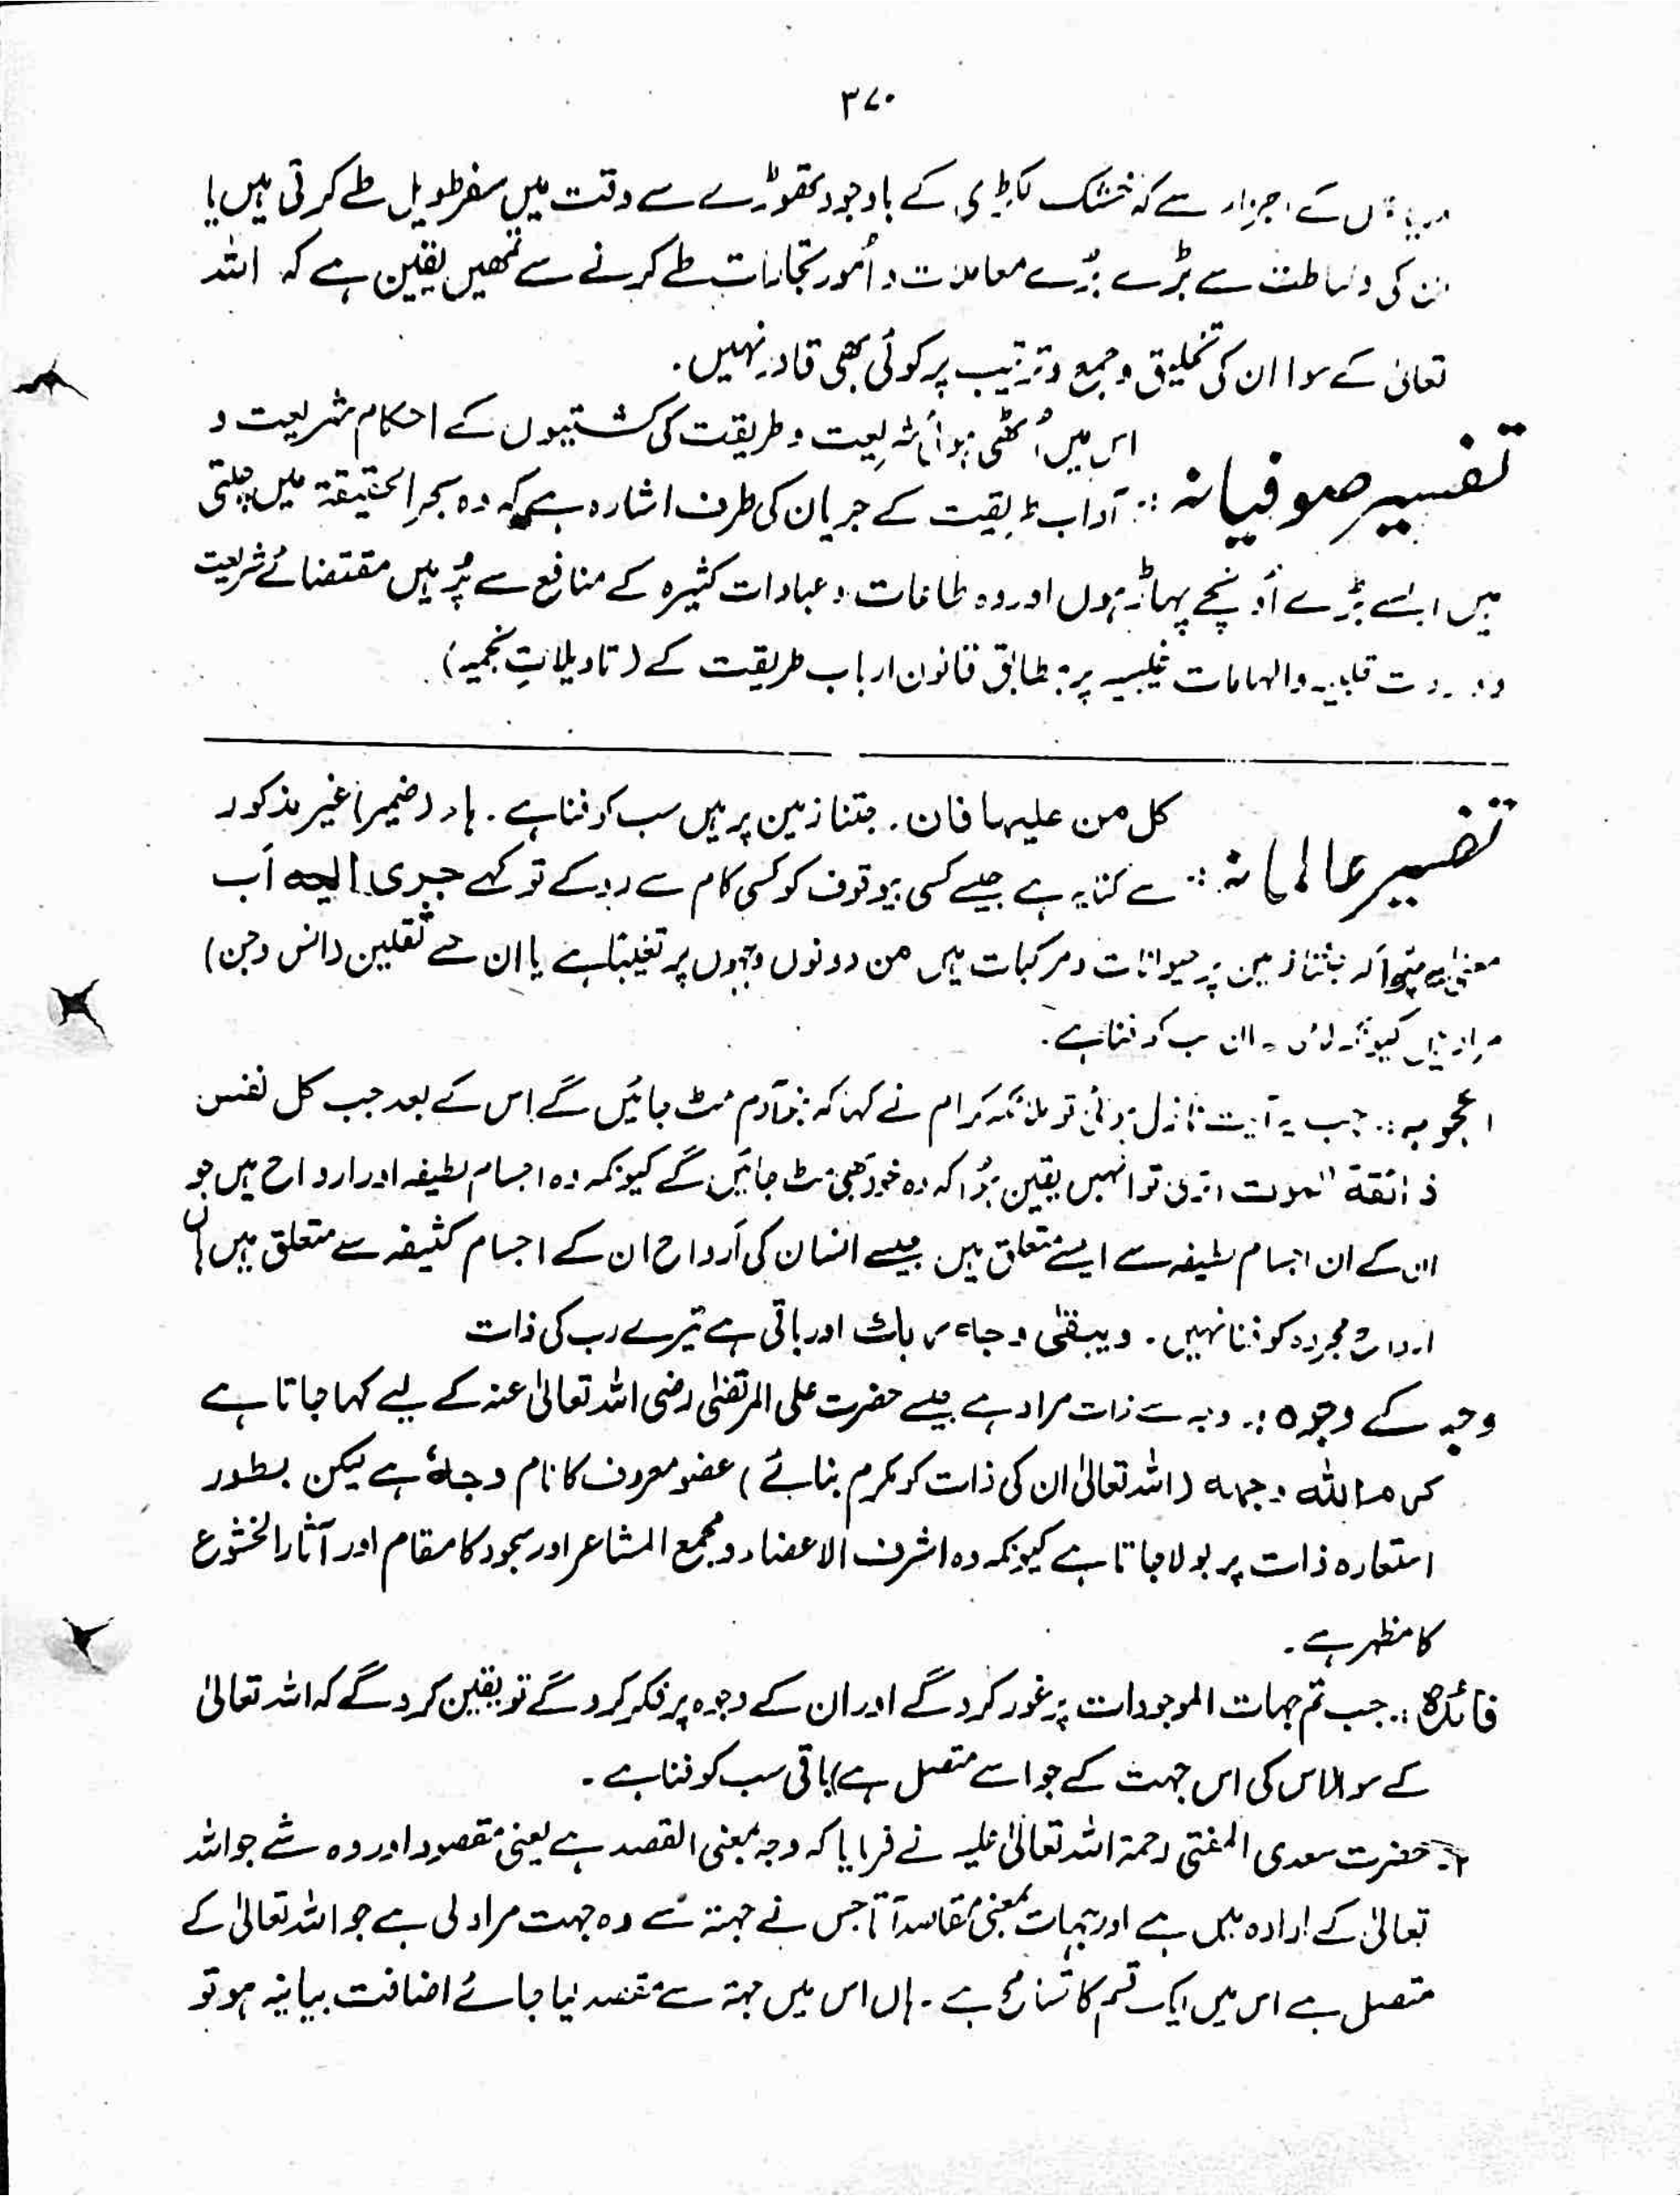 ۳۷۰
کے اجزاء سے کہ خشک لکڑی کے باوجود تھوڑے سے وقت میں سفر طویل طے کرتی ہیں یا
کی وساطت سے بڑے بڑے معاملات و اُمور تجارات طے کرنے سے تمھیں یقین ہے کہ اللہ
تعالیٰ کے سوا ان کی تخلیق و جمع و ترتیب پر کوئی بھی قادر نہیں.
اس میں اُٹھی ہوئی شریعت و طریقت کی کشتیوں کے احکام شریعت و
تفسیر صوفیانہ :: آداب طریقت کے جریان کی طرف اشارہ ہے کہ وہ بحر الحقیقۃ میں چلتی
ہیں ایسے بڑے اُونچے پہاڑ ہوں اور وہ طاعات و عبادات کثیرہ کے منافع سے پُر ہیں مقتضائے شریعت
و قلبیہ والہامات غیبیہ پر بمطابق قانون ارباب طریقت کے (تاویلاتِ نجمیہ)
کل من علیہا فان. جتنا زمین پر ہیں سب کو فنا ہے. ہاء (ضمیر) غیر مذکور
تفسیر عالمانہ :: سے کنایہ ہے جیسے کسی بیوقوف کو کسی کام سے روکے تو کہے جری الیہ اَب
معنیٰ یہ ہُوا کہ جتنا زمین پر حیوانات و مرکبات ہیں من دونوں وجہوں پر تغلیباً ہے یا ان سے ثقلین (انس و جن)
مراد ہیں کیونکہ ان سب کو فنا ہے.
اعجوبہ :. جب یہ آیت نازل ہوئی تو ملائکہ کرام نے کہا کہ بنو آدم مٹ جائیں گے اس کے بعد جب کل نفس
ذائقۃ الموت اتری تو انہیں یقین ہُوا کہ وہ خود بھی مٹ جائیں گے کیونکہ وہ اجسام لطیفہ اور ارواح ہیں جو
ان کے ان اجسام لطیفہ سے ایسے متعلق ہیں جیسے انسان کی اَرواح ان کے اجسام کثیفہ سے متعلق ہیں ہاں
ارواح مجردہ کو فنا نہیں. ویبقیٰ وجہ ربك اور باقی ہے تیرے رب کی ذات
وجہ کے وجوہ :. وجہ سے ذات مراد ہے جیسے حضرت علی المرتضیٰ رضی اللہ تعالیٰ عنہ کے لیے کہا جاتا ہے
کرم اللہ وجہہ (اللہ تعالیٰ ان کی ذات کو مکرم بنائے) عضو معروف کا نام وجہٗ ہے لیکن بطور
استعارہ ذات پر بولا جاتا ہے کیونکہ وہ اشرف الاعضاء و مجمع المشاعر اور سجود کا مقام اور آثار الخشوع
کا مظہر ہے.
فائدہ :. جب تم جہات الموجودات پر غور کرو گے اور ان کے وجوہ پر فکر کرو گے تو یقین کرو گے کہ اللہ تعالیٰ
کے سوا (اس کی اس جہت کے جو اسے متصل ہے) باقی سب کو فنا ہے.
۲. حضرت سعدی المفتی رحمۃ اللہ تعالیٰ علیہ نے فرمایا کہ وجہ بمعنی القصد ہے یعنی مقصود اور وہ شے جو اللہ
تعالیٰ کے ارادہ میں ہے اور جہات بمعنی مقاصد آتا جس نے جہتہ سے وہ جہت مراد لی ہے جو اللہ تعالیٰ کے
متصل ہے اس میں ایک قسم کا تسامح ہے. ہاں اس میں جہتہ سے مقصد لیا جائے اضافت بیانیہ ہو تو